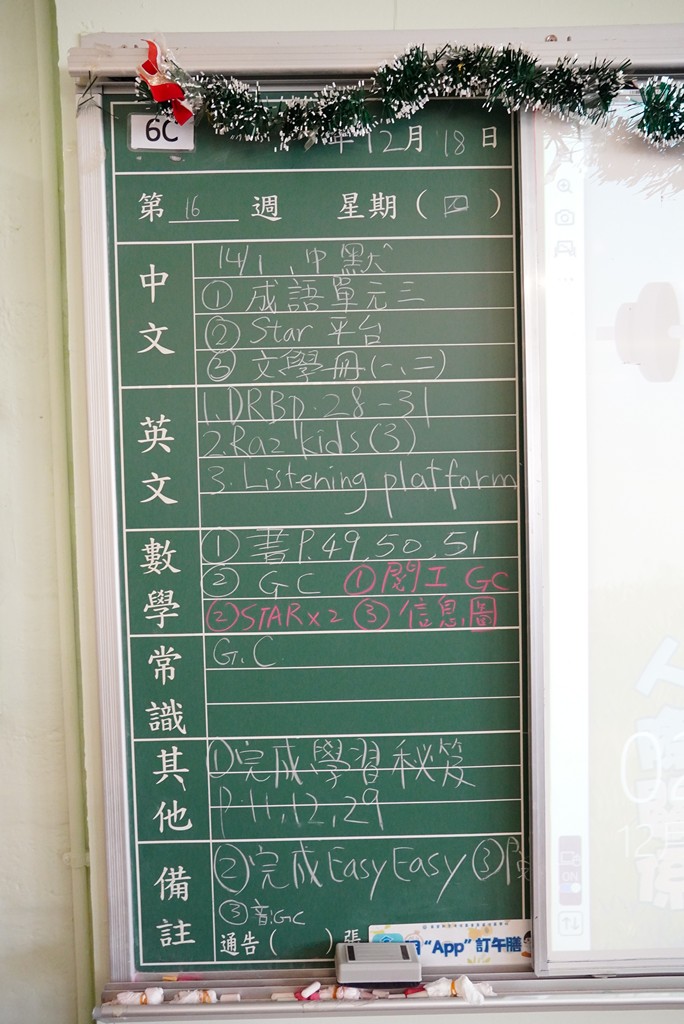 6C
年12月18日
第 16 週 星期（四）
中文
14/1、中默
① 成語單元三
② Star 平台
③ 文學冊(一、二)
英文
1. DRB p.28-31
2. Raz kids (3)
3. Listening platform
數學
① 書 P.49, 50, 51
② GC ① 閱工 GC
② STAR x2 ③ 信息圖
常識
G.C
其他
①完成學習秘笈
P.11, 12, 29
備註
②完成EasyEasy ③
③ 音:GC
通告（ ）張
用 “App” 訂午膳
ON